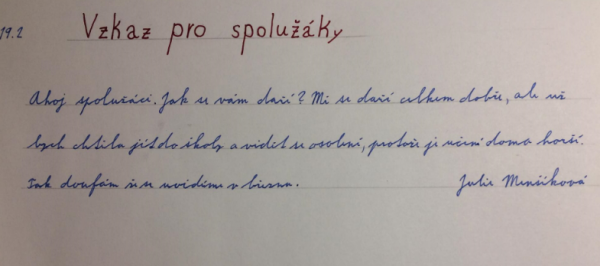 19.2
Vzkaz pro spolužáky
Ahoj spolužáci. Jak se vám daří? Mi se daří celkem dobře, ale už
bych chtěla jít do školy a vidět se osobně, protože je učení doma horší.
Tak doufám že se uvidíme v březnu.
Julie Menšíková